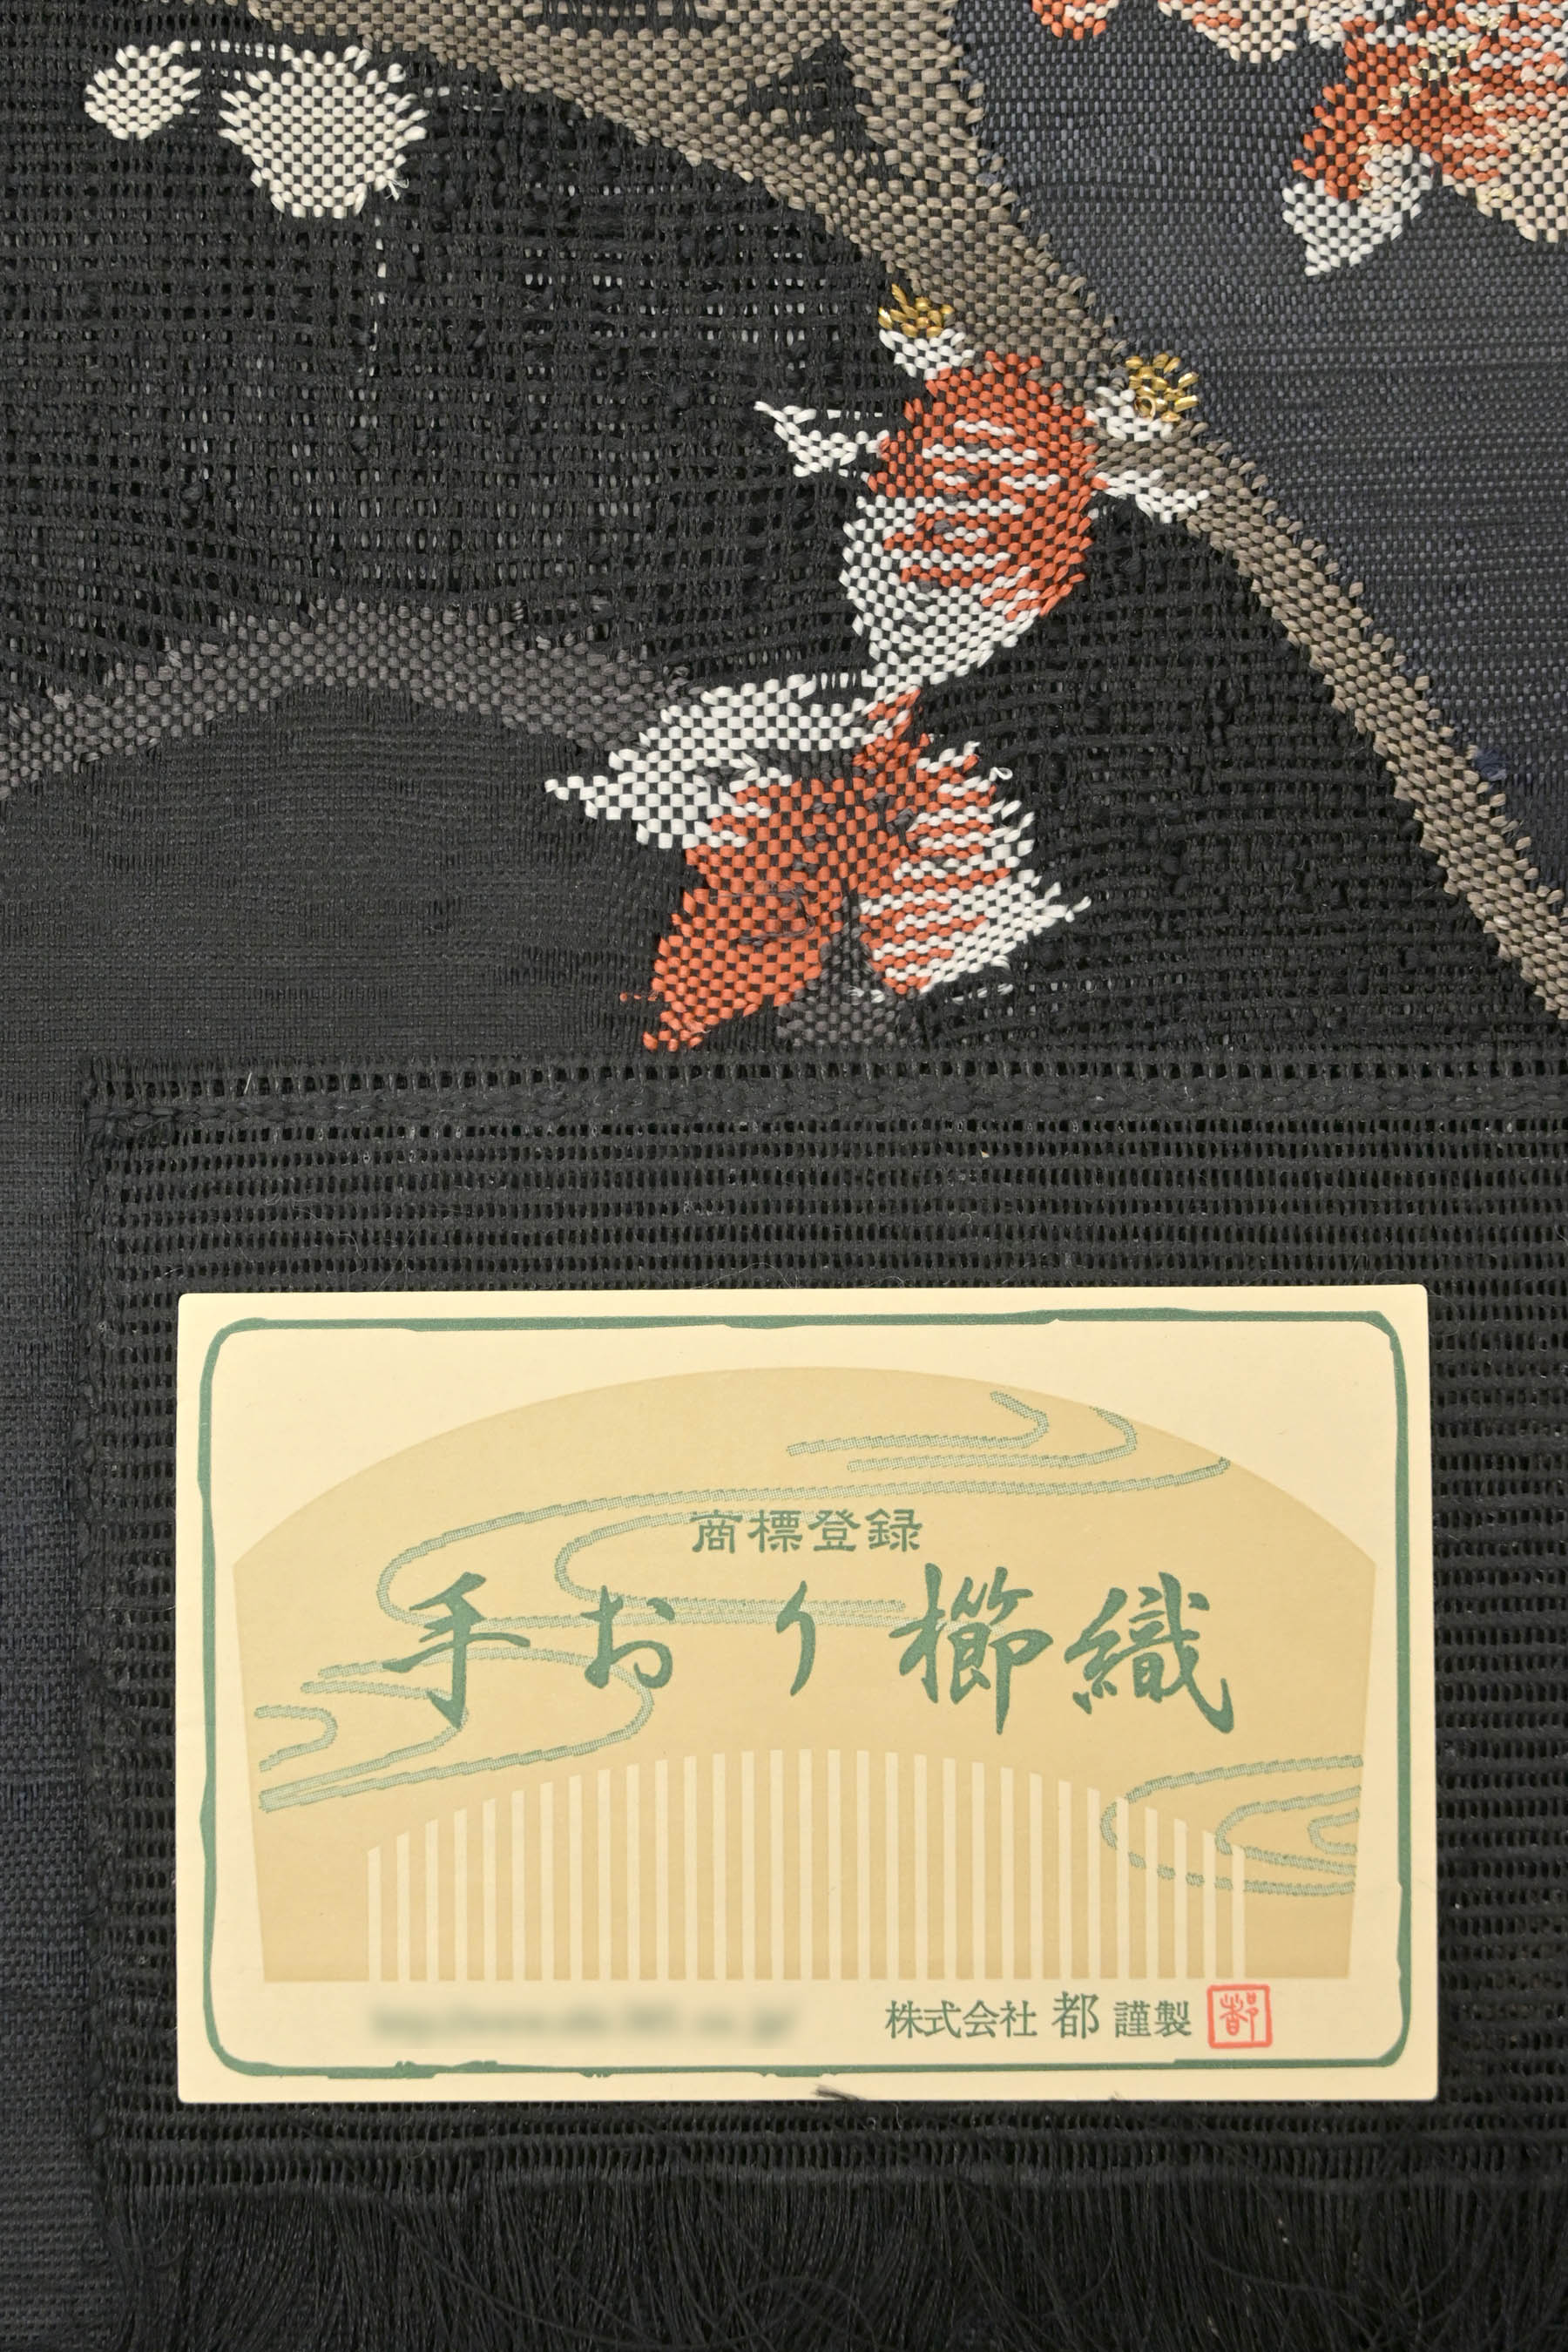 商標登録
手おり櫛織
株式会社 都 謹製
都